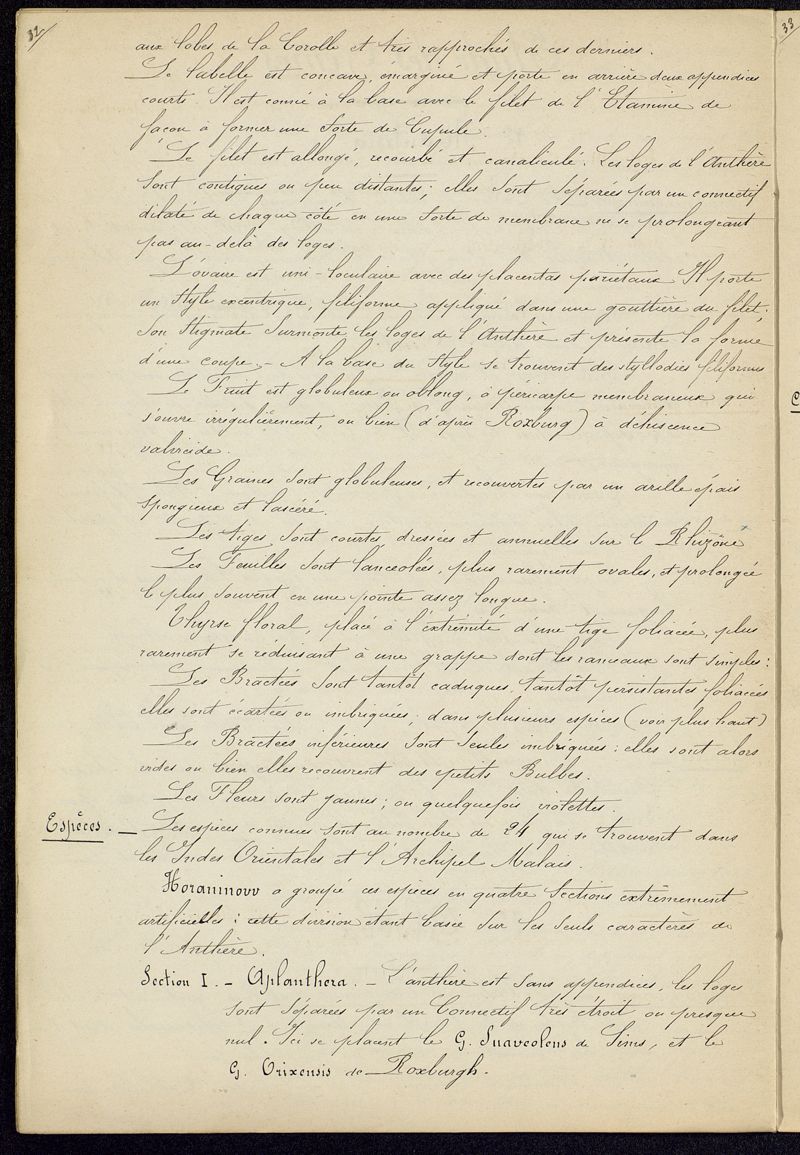 32/
33/
aux lobes de la Corolle et très rapprochés de ces derniers.
Le labelle est concave, émarginé et porte en arrière deux appendices
courts. Il est connié à la base avec le filet de l'Etamine de
façon à former une sorte de Cupule.
Le filet est allongé, recourbé et canaliculé. Les loges de l'Anthère
sont contigues ou peu distantes; elles sont séparées par un connectif
dilaté de chaque côté en une sorte de membrane ne se prolongeant
pas au-delà des loges.
L'ovaire est uni-loculaire avec des placentas pariétaux Il porte
un style excentrique, filiforme appliqué dans une gouttière du filet;
son stigmate surmonte les loges de l'Anthère et présente la forme
d'une coupe. - A la base du style se trouvent des styllodies filiformes
Le Fruit est globuleux ou oblong, à péricarpe membraneux qui
s'ouvre irrégulièrement, ou bien (d'après Roxburg) à déhiscence
valvicide.
Les Graines sont globuleuses, et recouvertes par un arille épais
spongieux et lacéré.
Les tiges sont courtes, dressées et annuelles sur le Rhizôme
Les Feuilles sont lancéolées, plus rarement ovales, et prolongée
le plus souvent en une pointe assez longue.
Thyrse floral, placé à l'extrémité d'une tige foliacée, plus
rarement se réduisant à une grappe dont les rameaux sont simples:
Les Bractées sont tantôt caduques, tantôt persistantes foliacées
elles sont écartées ou imbriquées; dans plusieurs espèces (voir plus haut)
Les Bractées inférieures sont seules imbriquées: elles sont alors
vides ou bien elles recouvrent des petits Bulbes.
Les Fleurs sont jaunes; ou quelquefois violettes.
Espèces. - Les espèces connues sont au nombre de 24 qui se trouvent dans
les Indes Orientales et l'Archipel Malais.
Horaninovv a groupé ces espèces en quatre sections extrêmement
artificielles: cette division étant basée sur les seuls caractères de
l'Anthère.
Section I. - Aplanthera. - L'anthère est sans appendices, les loges
sont séparées par un Connectif très étroit ou presque
nul. Ici se placent le G. Suaveolens de Sims, et le
G. Orixensis de Roxburgh.
C